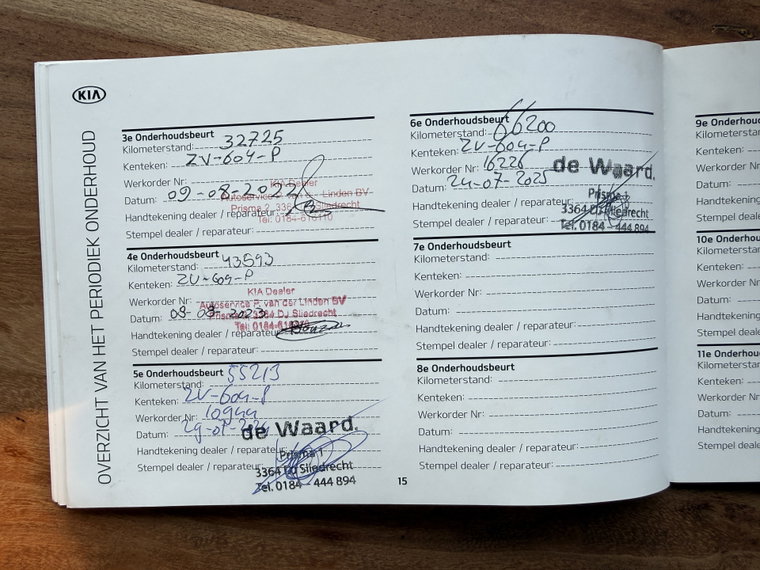 KIA
OVERZICHT VAN HET PERIODIEK ONDERHOUD
3e Onderhoudsbeurt
Kilometerstand: 32725
Kenteken: ZV-604-P
Werkorder Nr:
Datum: 09-08-2022
KIA Dealer
Autoservice P. van der Linden BV
Prisma 2, 336 Sliedrecht
Tel: 0184-616110
Handtekening dealer / reparateur:
Stempel dealer / reparateur:
4e Onderhoudsbeurt
Kilometerstand: 43593
Kenteken: ZV-604-P
Werkorder Nr:
Datum: 08-08-2023
KIA Dealer
Autoservice P. van der Linden BV
Prisma 3364 DJ Sliedrecht
Tel: 0184-616110
Handtekening dealer / reparateur:
Stempel dealer / reparateur:
5e Onderhoudsbeurt
Kilometerstand: 55213
Kenteken: ZV-604-P
Werkorder Nr: 10944
Datum:
Handtekening dealer / reparateur:
Stempel dealer / reparateur:
de Waard.
Prisma 1
3364 DJ Sliedrecht
Tel. 0184 - 444 894
15
6e Onderhoudsbeurt
Kilometerstand: 66200
Kenteken: ZV-604-P
Werkorder Nr: 16226
Datum: 24-07-2025
Handtekening dealer / reparateur:
Stempel dealer / reparateur:
de Waard.
Prisma
3364 DJ Sliedrecht
Tel. 0184 - 444 894
7e Onderhoudsbeurt
Kilometerstand:
Kenteken:
Werkorder Nr:
Datum:
Handtekening dealer / reparateur:
Stempel dealer / reparateur:
8e Onderhoudsbeurt
Kilometerstand:
Kenteken:
Werkorder Nr:
Datum:
Handtekening dealer / reparateur:
Stempel dealer / reparateur:
9e Onderhou
Kilometerstan
Kenteken:
Werkorder N
Datum:
Handtekenin
Stempel dea
10e Onderho
Kilometersta
Kenteken:
Werkorder
Datum:
Handtekeni
Stempel de
11e Onderho
Kilometersta
Kenteken:
Werkorder
Datum:
Handteken
Stempel de